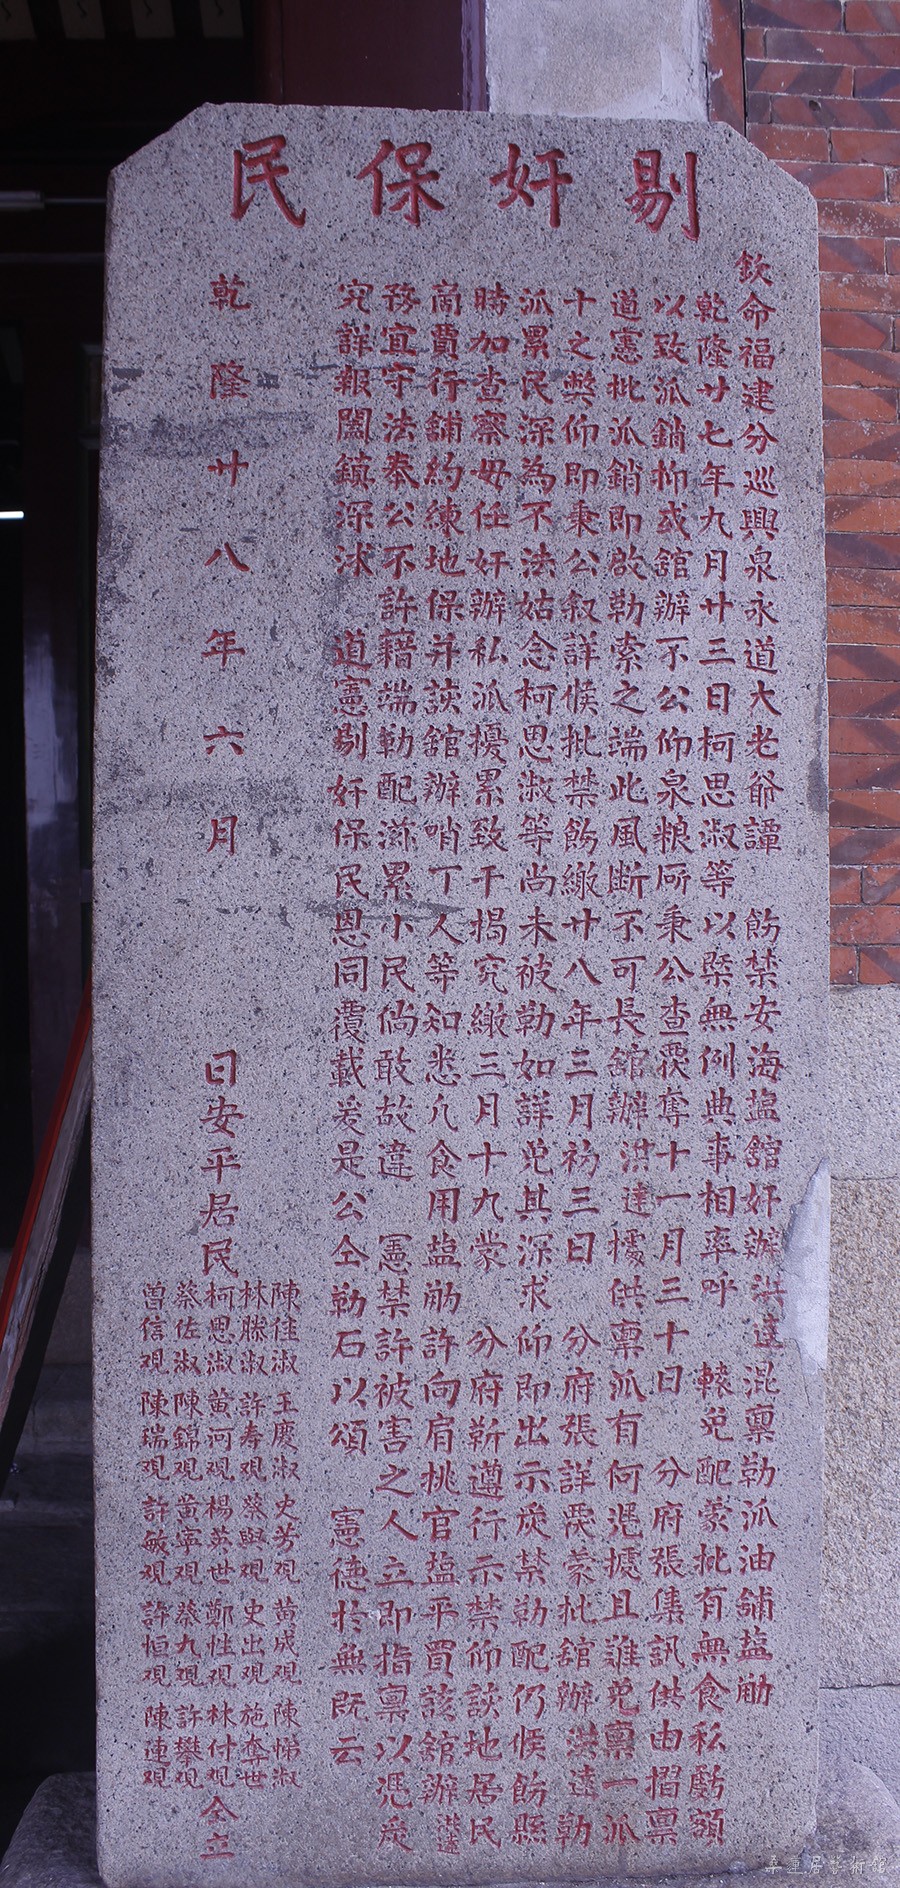 剔奸保民
欽命福建分巡興泉永道大老爺譚　飭禁安海塩舘奸辦洪逵混禀勒派油舖塩觔
乾隆廿七年九月廿三日柯思淑等以槩無例典事相率呼　轅免配蒙批有無食私虧額
以致派銷抑或舘辦不公仰泉粮㕔秉公查覆奪十一月三十日　分府張集訊供由摺禀
道憲批派銷即啟勒索之端此風斷不可長舘辦洪逵據供禀派有何憑據且誰免禀一派
十之獘仰即秉公叙詳候批禁飭繳廿八年三月初三日　分府張詳覆蒙批舘辦洪逵勒
派累民深為不法姑念柯思淑等尚未被勒如詳免其深求仰即出示炭禁勒配仍候飭縣
時加查察毋任奸辦私派擾累致干揭究繳三月十九蒙　分府靳遵行示禁仰該地居民
啇費行舖約練地保并該舘辦哨丁人等知悉凢食用塩觔許向肩挑官塩平買該舘辦洪逵
務宜守法奉公不許藉端勒配滋累小民倘敢故違　憲禁許被害之人立即指禀以憑炭
究詳報闔鎮深沭　道憲剔奸保民恩同覆載爰是公仝勒石以頌　憲德於無既云
乾隆廿八年六月　日安平居民
陳佳淑　王慶淑　史芳观　黄成观　陳悌淑
林勝淑　許寿观　蔡與观　史出观　施奪世
柯思淑　黄河观　楊英世　鄭性观　林付观　仝立
蔡佐淑　陳錦观　黄寧观　蔡九观　許攀观
曾信观　陳瑞观　許敏观　許恒观　陳連观
桑蓮居藝術館